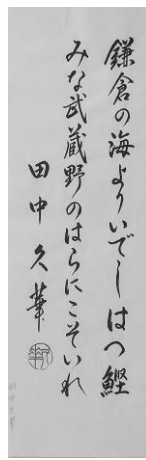 鎌倉の海よりいでしはつ鰹
みな武蔵野のはらにこそいれ
田中久華
華
田中久華